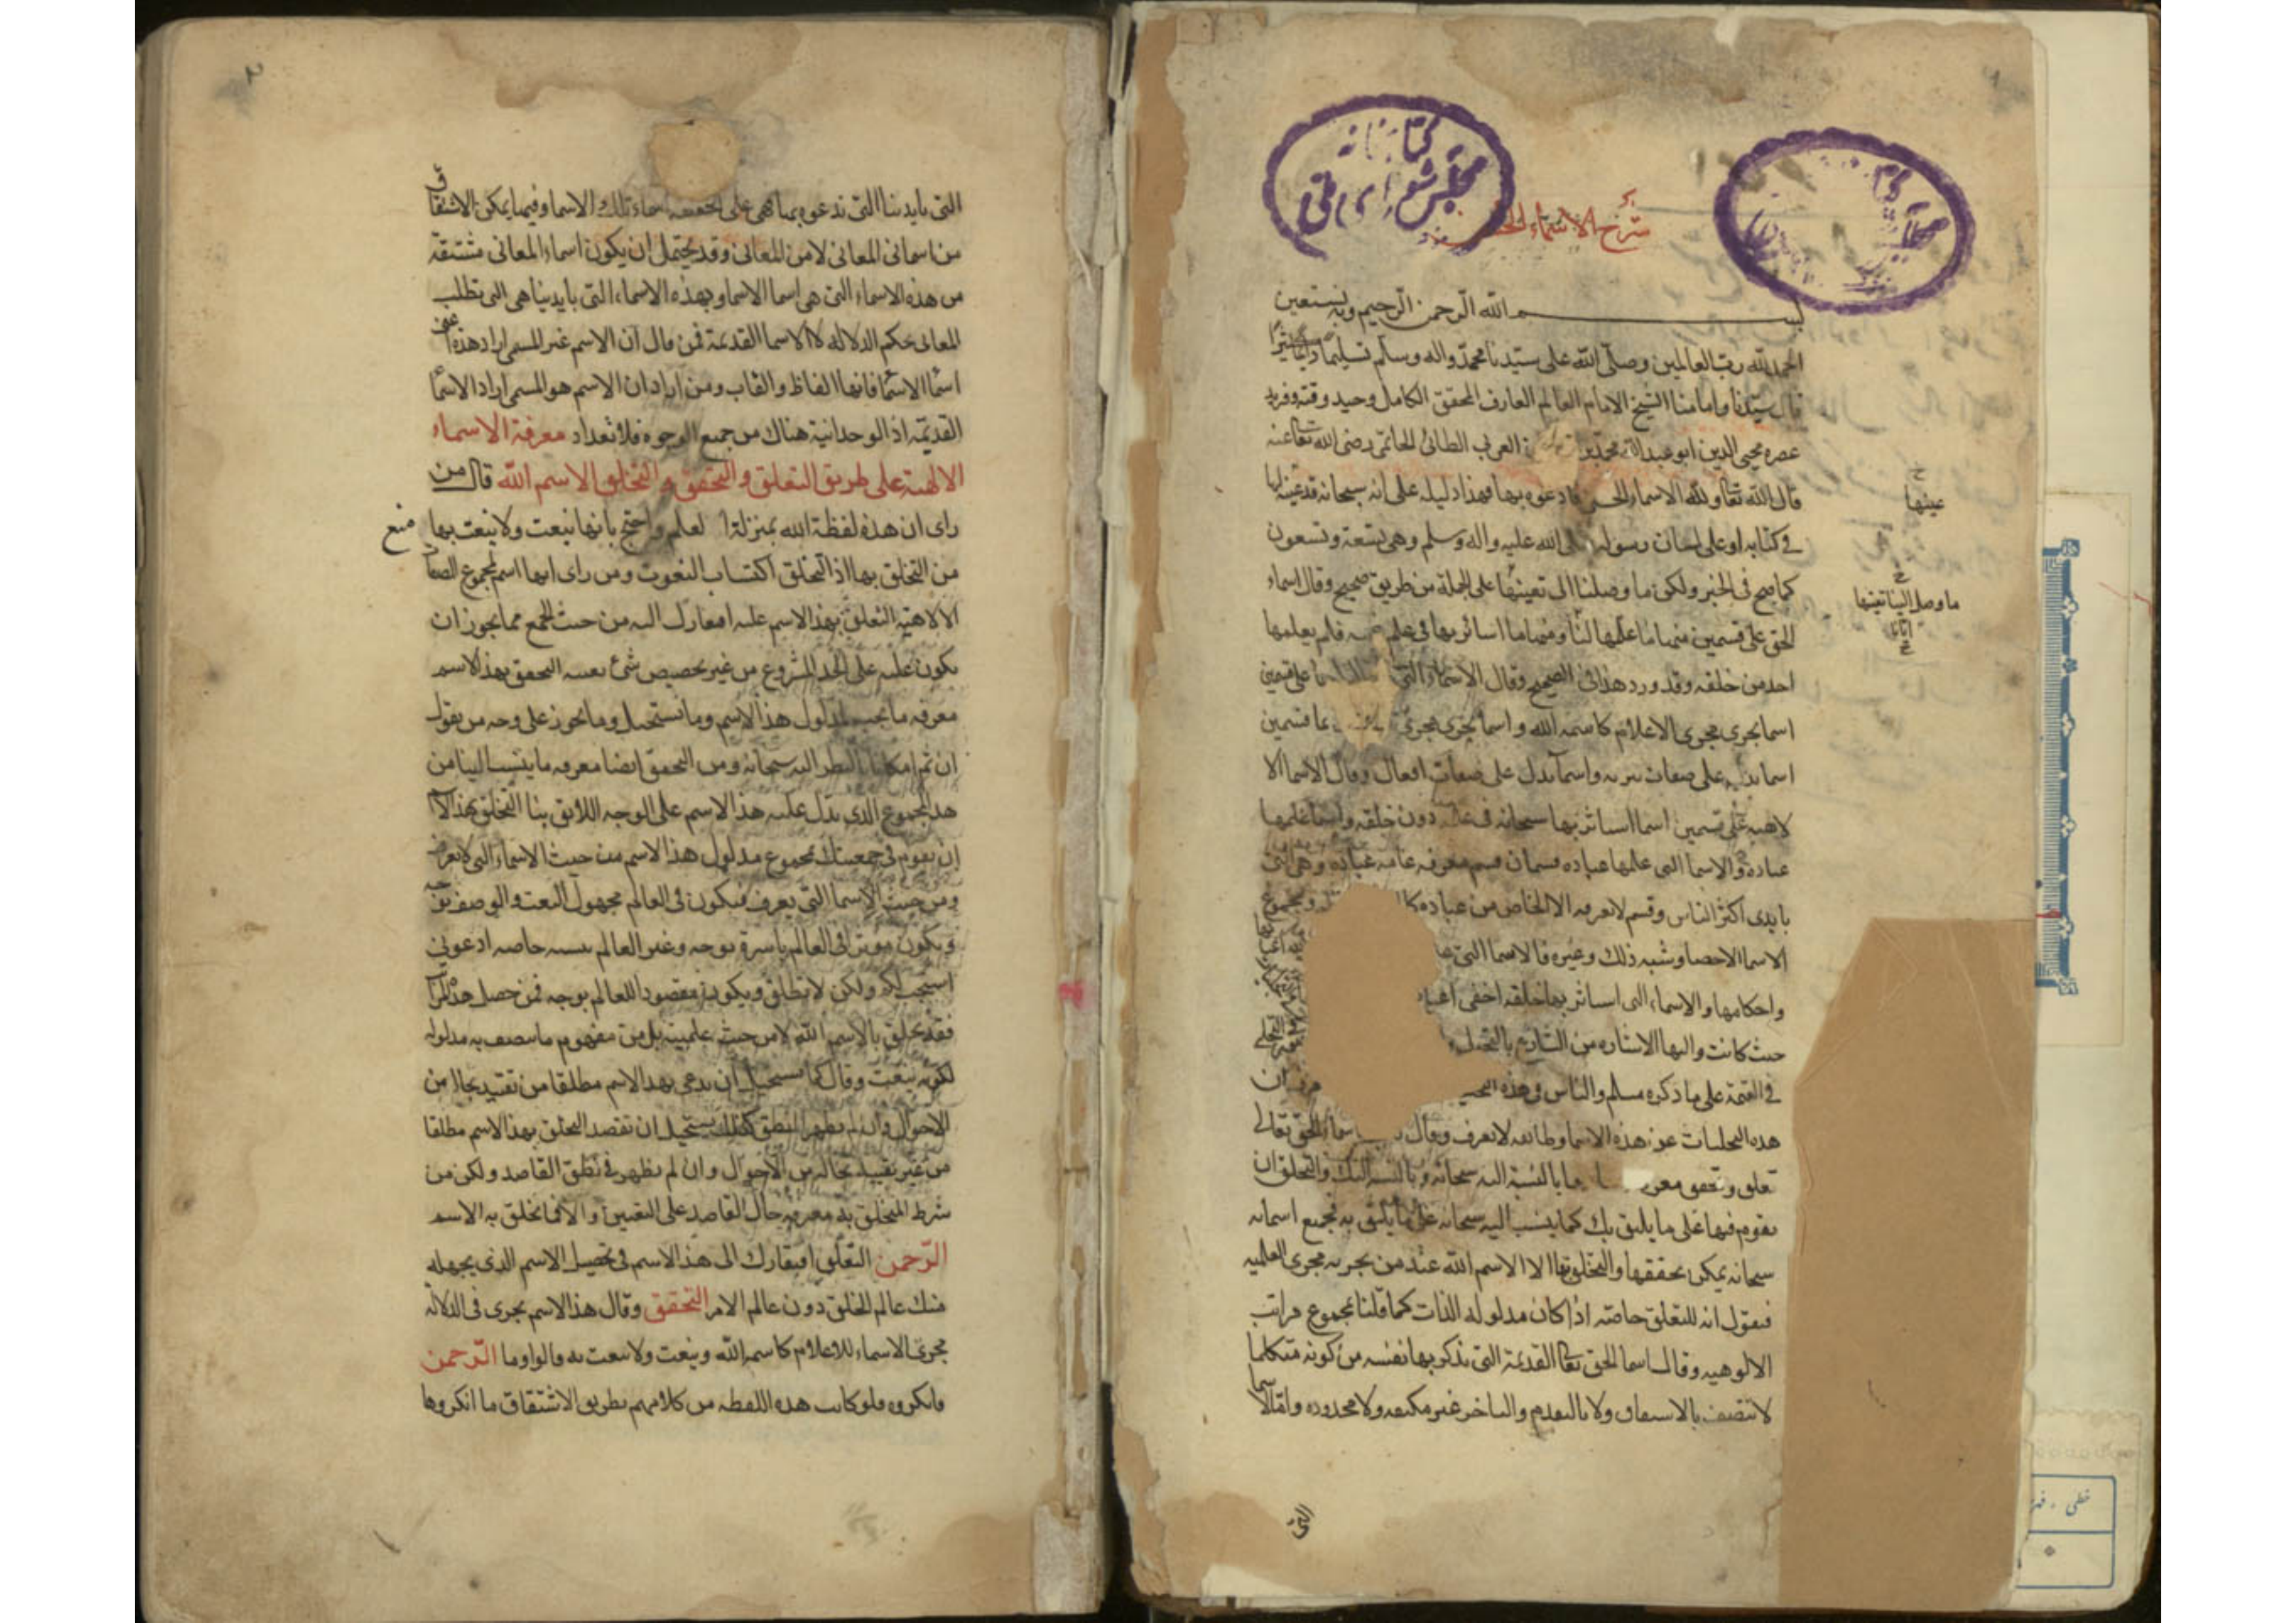 كتابخانه
مجلس شورای ملی
شرح الاسماء
بسم الله الرحمن الرحيم وبه نستعين
الحمد لله رب العالمين وصلى الله على سيدنا محمد واله وسلم تسليما دائما كثيرا
قال سيدنا وامامنا الشيخ الامام العالم العارف المحقق الكامل وحيد وقته وفريد
عصره محيي الدين ابو عبد الله محمد بن العربى الطائى الحاتمى رضى الله تعالى عنه
قال الله تعالى ولله الاسماء الحسنى فادعوه بها فهذا دليله على انه سبحانه قد عينها لنا
فى كتابه او على لسان رسوله صلى الله عليه واله وسلم وهى تسعة وتسعون
كما صح فى الخبر ولكن ما وصلنا الى تعيينها على الجملة من طريق صحيح وقال اسماء
الحق على قسمين منها ما علمها لنا ومنها ما استاثر بها فى علم فلم يعلمها
احد من خلقه وقد ورد هذا فى الصحيح وقال الاسماء التى على قسمين
اسما يجرى مجرى الاعلام كاسمه الله واسما يجرى مجرى على قسمين
اسما يدل على صفات تنزيه واسما يدل على صفات افعال وقال الاسما الا
لاهيه على قسمين اسما استاثر بها سبحانه فى علمه دون خلقه واسما علمها
عباده والاسما التى علمها عباده قسمان قسم معرفه عامه عباده وهى التى
بايدى اكثر الناس وقسم لا يعرفه الا الخاص من عباده ومجموع
الاسما الاحصا وشبه ذلك وغيره فالاسما التى
واحكامها والاسماء التى استاثر بها خلقه اخفى
حيث كانت واليها الاشاره من الشارع
فى القيمة على ما ذكره مسلم والناس فى هذه
هذه التجليات عن هذه الاسما وطائفه لا يعرف وقال الحق تعالى
تعلق وتحقق بالنسبة اليه سبحانه وبالنسبه اليك والتخلق ان
تقوم فيها على ما يليق بك كما ينسب اليه سبحانه على ما يليق به فجميع اسمائه
سبحانه يمكن تحققها والتخلق بها الا الاسم الله عند من يجريه مجرى العلميه
فيقول انه للتعلق خاصه اذ كان مدلوله الذات كما قلنا بمجموع مراتب
الالوهيه وقال اسما الحق تعالى القديمة التى يذكر بها نفسه من كونه متكلما
لا تتصف بالاشتقاق ولا بالتقدم والتاخر غير مكيفه ولا محدوده
التى
عينها
ما وصل الينا تعيينها
التى بايدينا التى ندعوه بها هى على الحقيقه اسماء تلك الاسما وفيها يمكن الاشتقاق
من اسمائى المعانى لا من المعانى وقد يحتمل ان يكون اسماء المعانى مشتقة
من هذه الاسماء التى هى اسما الاسما وبهذه الاسماء التى بايدينا هى التى تطلب
المعانى بحكم الدلاله لا الاسما القديمة فمن قال ان الاسم غير المسمى اراد هذه اعنى
اسما الاسما فانها الفاظ والقاب ومن اراد ان الاسم هو المسمى اراد الاسما
القديمة اذ الوحدانية هناك من جميع الوجوه فلا تعداد معرفة الاسماء
الالهية على طريق التعلق والتحقق والتخلق الاسم الله قال من
راى ان هذه لفظة الله بمنزلة العلم واحتج بانها تنعت ولا ينعت بها منع
من التخلق بها اذ التخلق اكتساب النعوت ومن راى انها اسم لمجموع الصفات
الالاهية التعلق بهذا الاسم عليه افتقارك اليه من حيث الجمع مما يجوز ان
يكون عليه على الحد المشروع من غير تخصيص شئ بعينه التحقق بهذا الاسم
معرفه ما يجب لمدلول هذا الاسم وما يستحيل وما يجوز على وجه من يقول
ان ثم امكانا بالنظر اليه سبحانه ومن التحقق ايضا معرفه ما ينسب الينا من
هذا المجموع الذى يدل عليه هذا الاسم على الوجه اللائق بنا التخلق بهذا الا
ان يقوم فى جمعيتك بمجموع مدلول هذا الاسم من حيث الاسماء التى لا يعرف
ومن حيث الاسما التى يعرف فيكون فى العالم مجهول النعت والوصف
ويكون موثرا فى العالم باسره بوجه وغير العالم بنسبه خاصه ادعونى
استجب لكم ولكن لا تطلق ويكون مقصود العالم بوجه فمن حصل هذه
فقد تخلق بالاسم الله لا من حيث علميته بل من مفهوم ما يتصف به مدلوله
لكونه ينعت وقال كما يستحيل ان يدعى بهذا الاسم مطلقا من تقييد بحال من
الاحوال وان لم يظهر النطق كذلك يستحيل ان تقصد التخلق بهذا الاسم مطلقا
من غير تقييد بحاله من الاحوال وان لم يظهر فى نطق القاصد ولكن من
شرط المتخلق به معرفه حال القاصد على التعيين والا فما تخلق به الاسم
الرحمن التعلق افتقارك الى هذا الاسم فى تحصيل الاسم الذى يجهله
منك عالم الخلق دون عالم الامر التحقق وقال هذا الاسم يجرى فى الدلالة
مجرى الاسماء للاعلام كاسمه الله وينعت ولا ينعت به قالوا وما الرحمن
فانكروه ولو كانت هذه اللفظه من كلامهم بطريق الاشتقاق ما انكروها